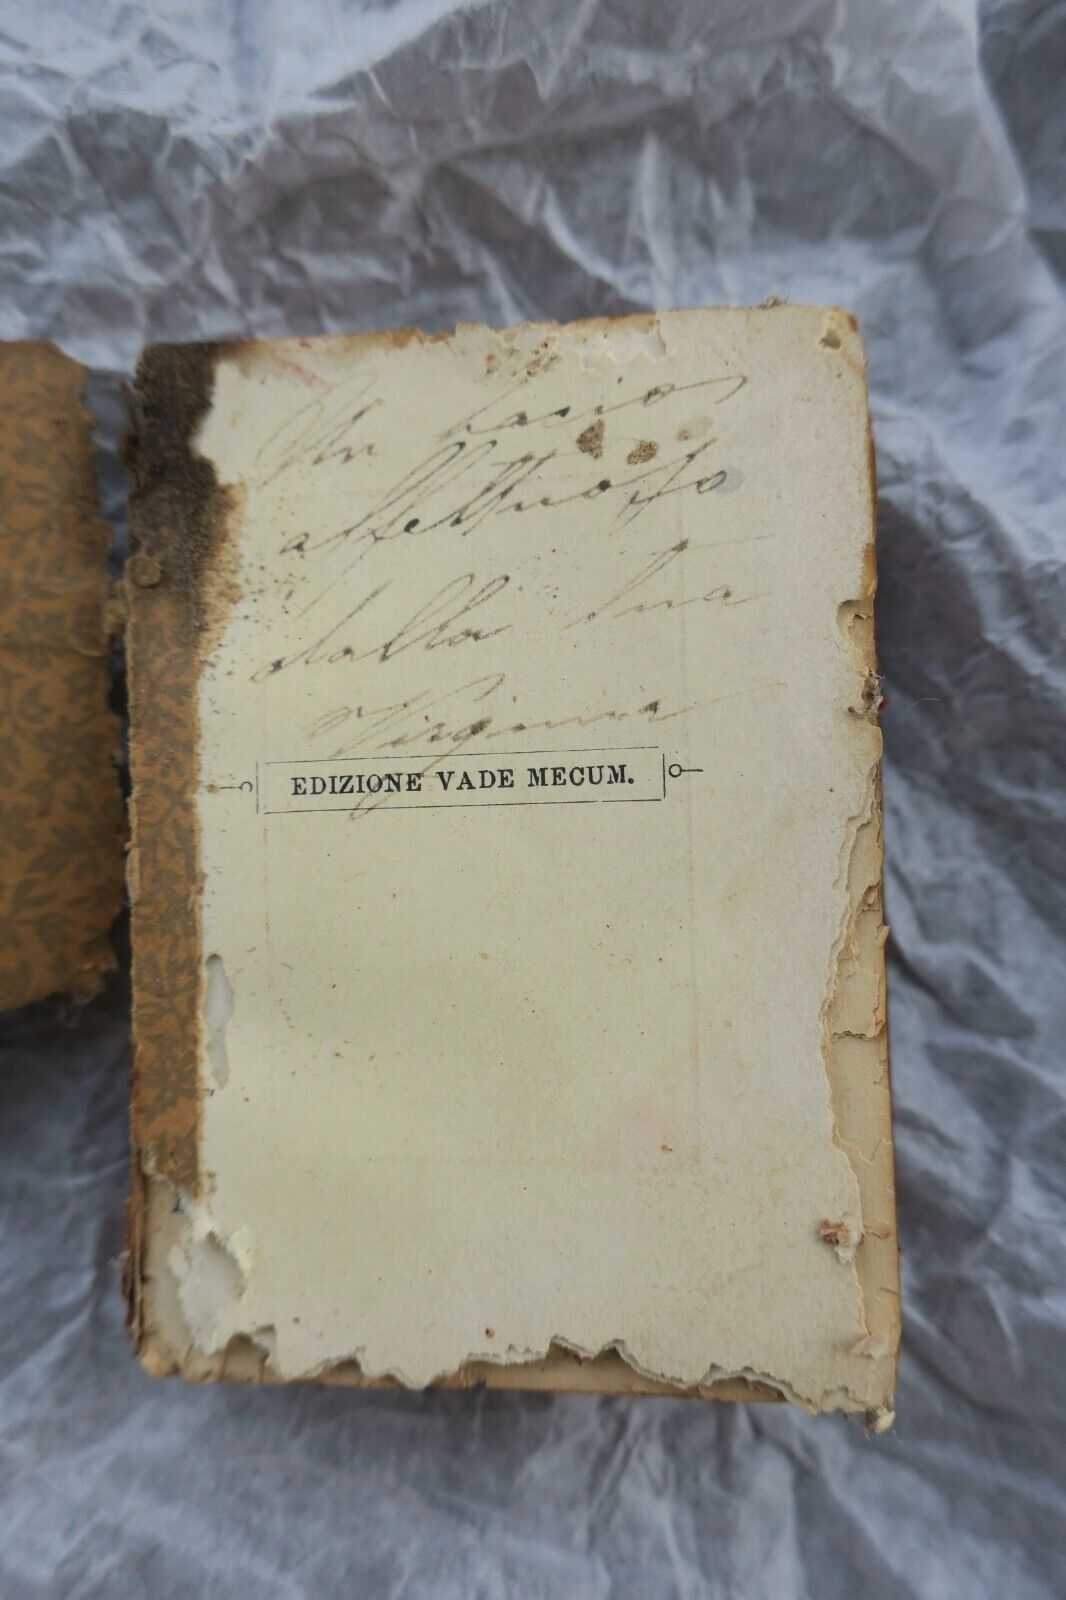 Un bacio
affettuoso
dalla tua
Virginia
EDIZIONE VADE MECUM.